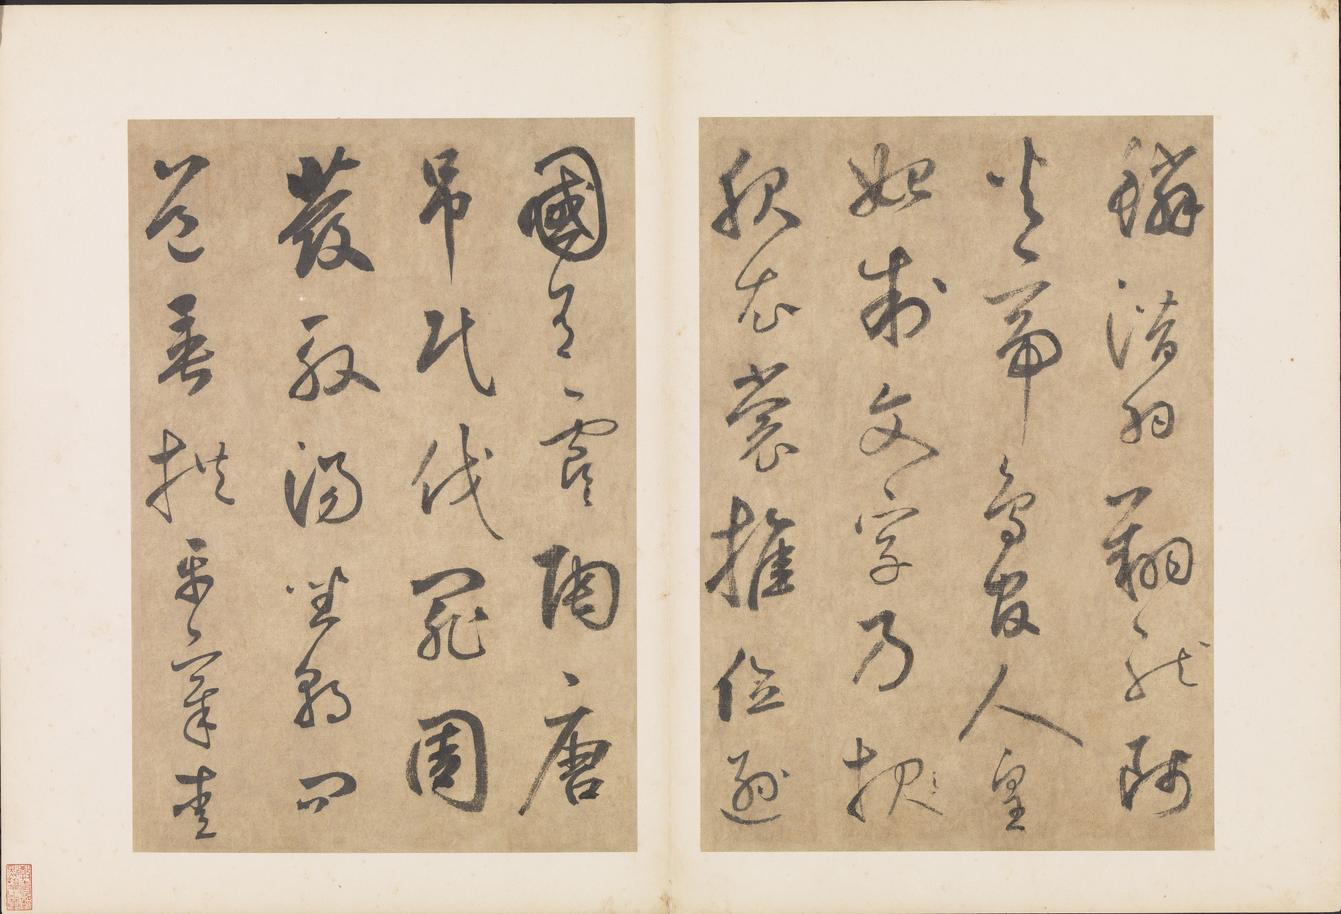 鱗潛羽翔龍師
火帝鳥官人皇
始制文字乃
服衣裳推位遜
國有虞陶唐
吊民伐罪周
發殷湯坐朝問
道垂拱平章愛